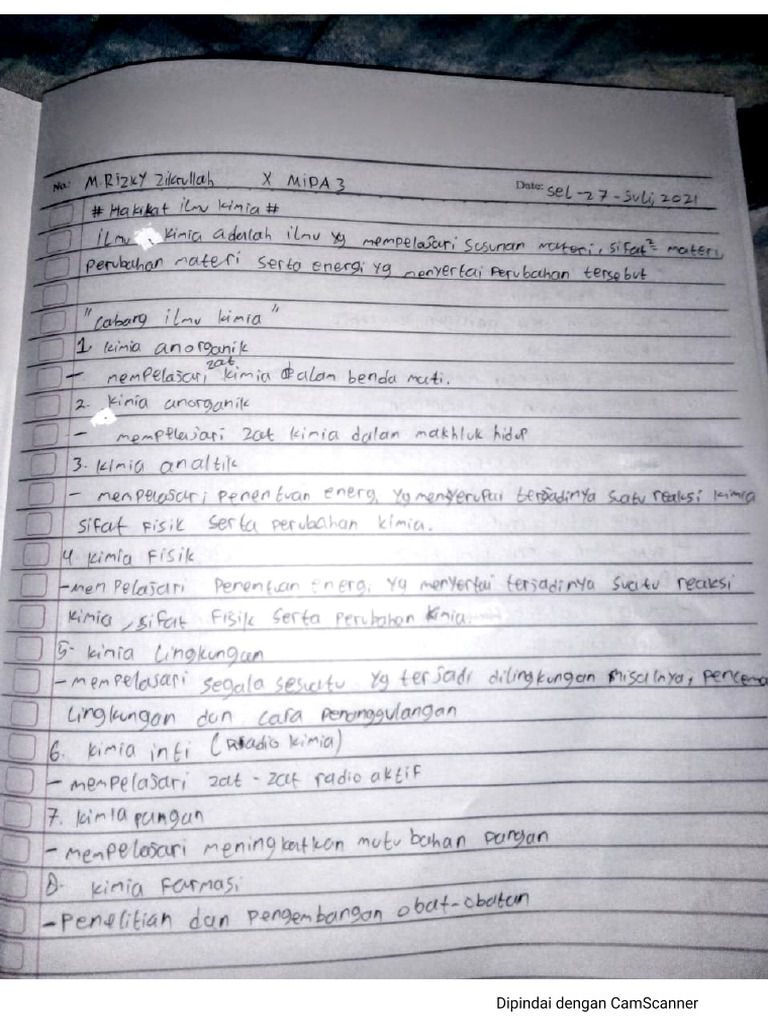 No: M. Rizky Zikrullah X MIPA 3 Date: sel - 27 - Juli, 2021
# Hakikat ilmu kimia #
ilmu kimia adalah ilmu yg mempelajari susunan materi, sifat² materi,
perubahan materi serta energi yg menyertai perubahan tersebut
"Cabang ilmu kimia"
1. kimia anorganik
- mempelajari zat kimia dalam benda mati.
2. kimia anorganik
- mempelajari zat kimia dalan makhluk hidup
3. kimia analtik
- mempelajari penentuan energi yg menyerupai terjadinya suatu reaksi kimia
sifat fisik serta perubahan kimia.
4. kimia fisik
- mempelajari penentuan energi yg menyertai terjadinya suatu reaksi
kimia, sifat fisik serta perubahan kimia.
5. kimia lingkungan
- mempelajari segala sesuatu yg terjadi dilingkungan misalnya, pencema
lingkungan dan cara penanggulangan
6. kimia inti (Radio kimia)
- mempelajari zat - zat radio aktif
7. kimia pangan
- mempelajari meningkatkan mutu bahan pangan
8. kimia farmasi
- penelitian dan pengembangan obat-obatan
Dipindai dengan CamScanner